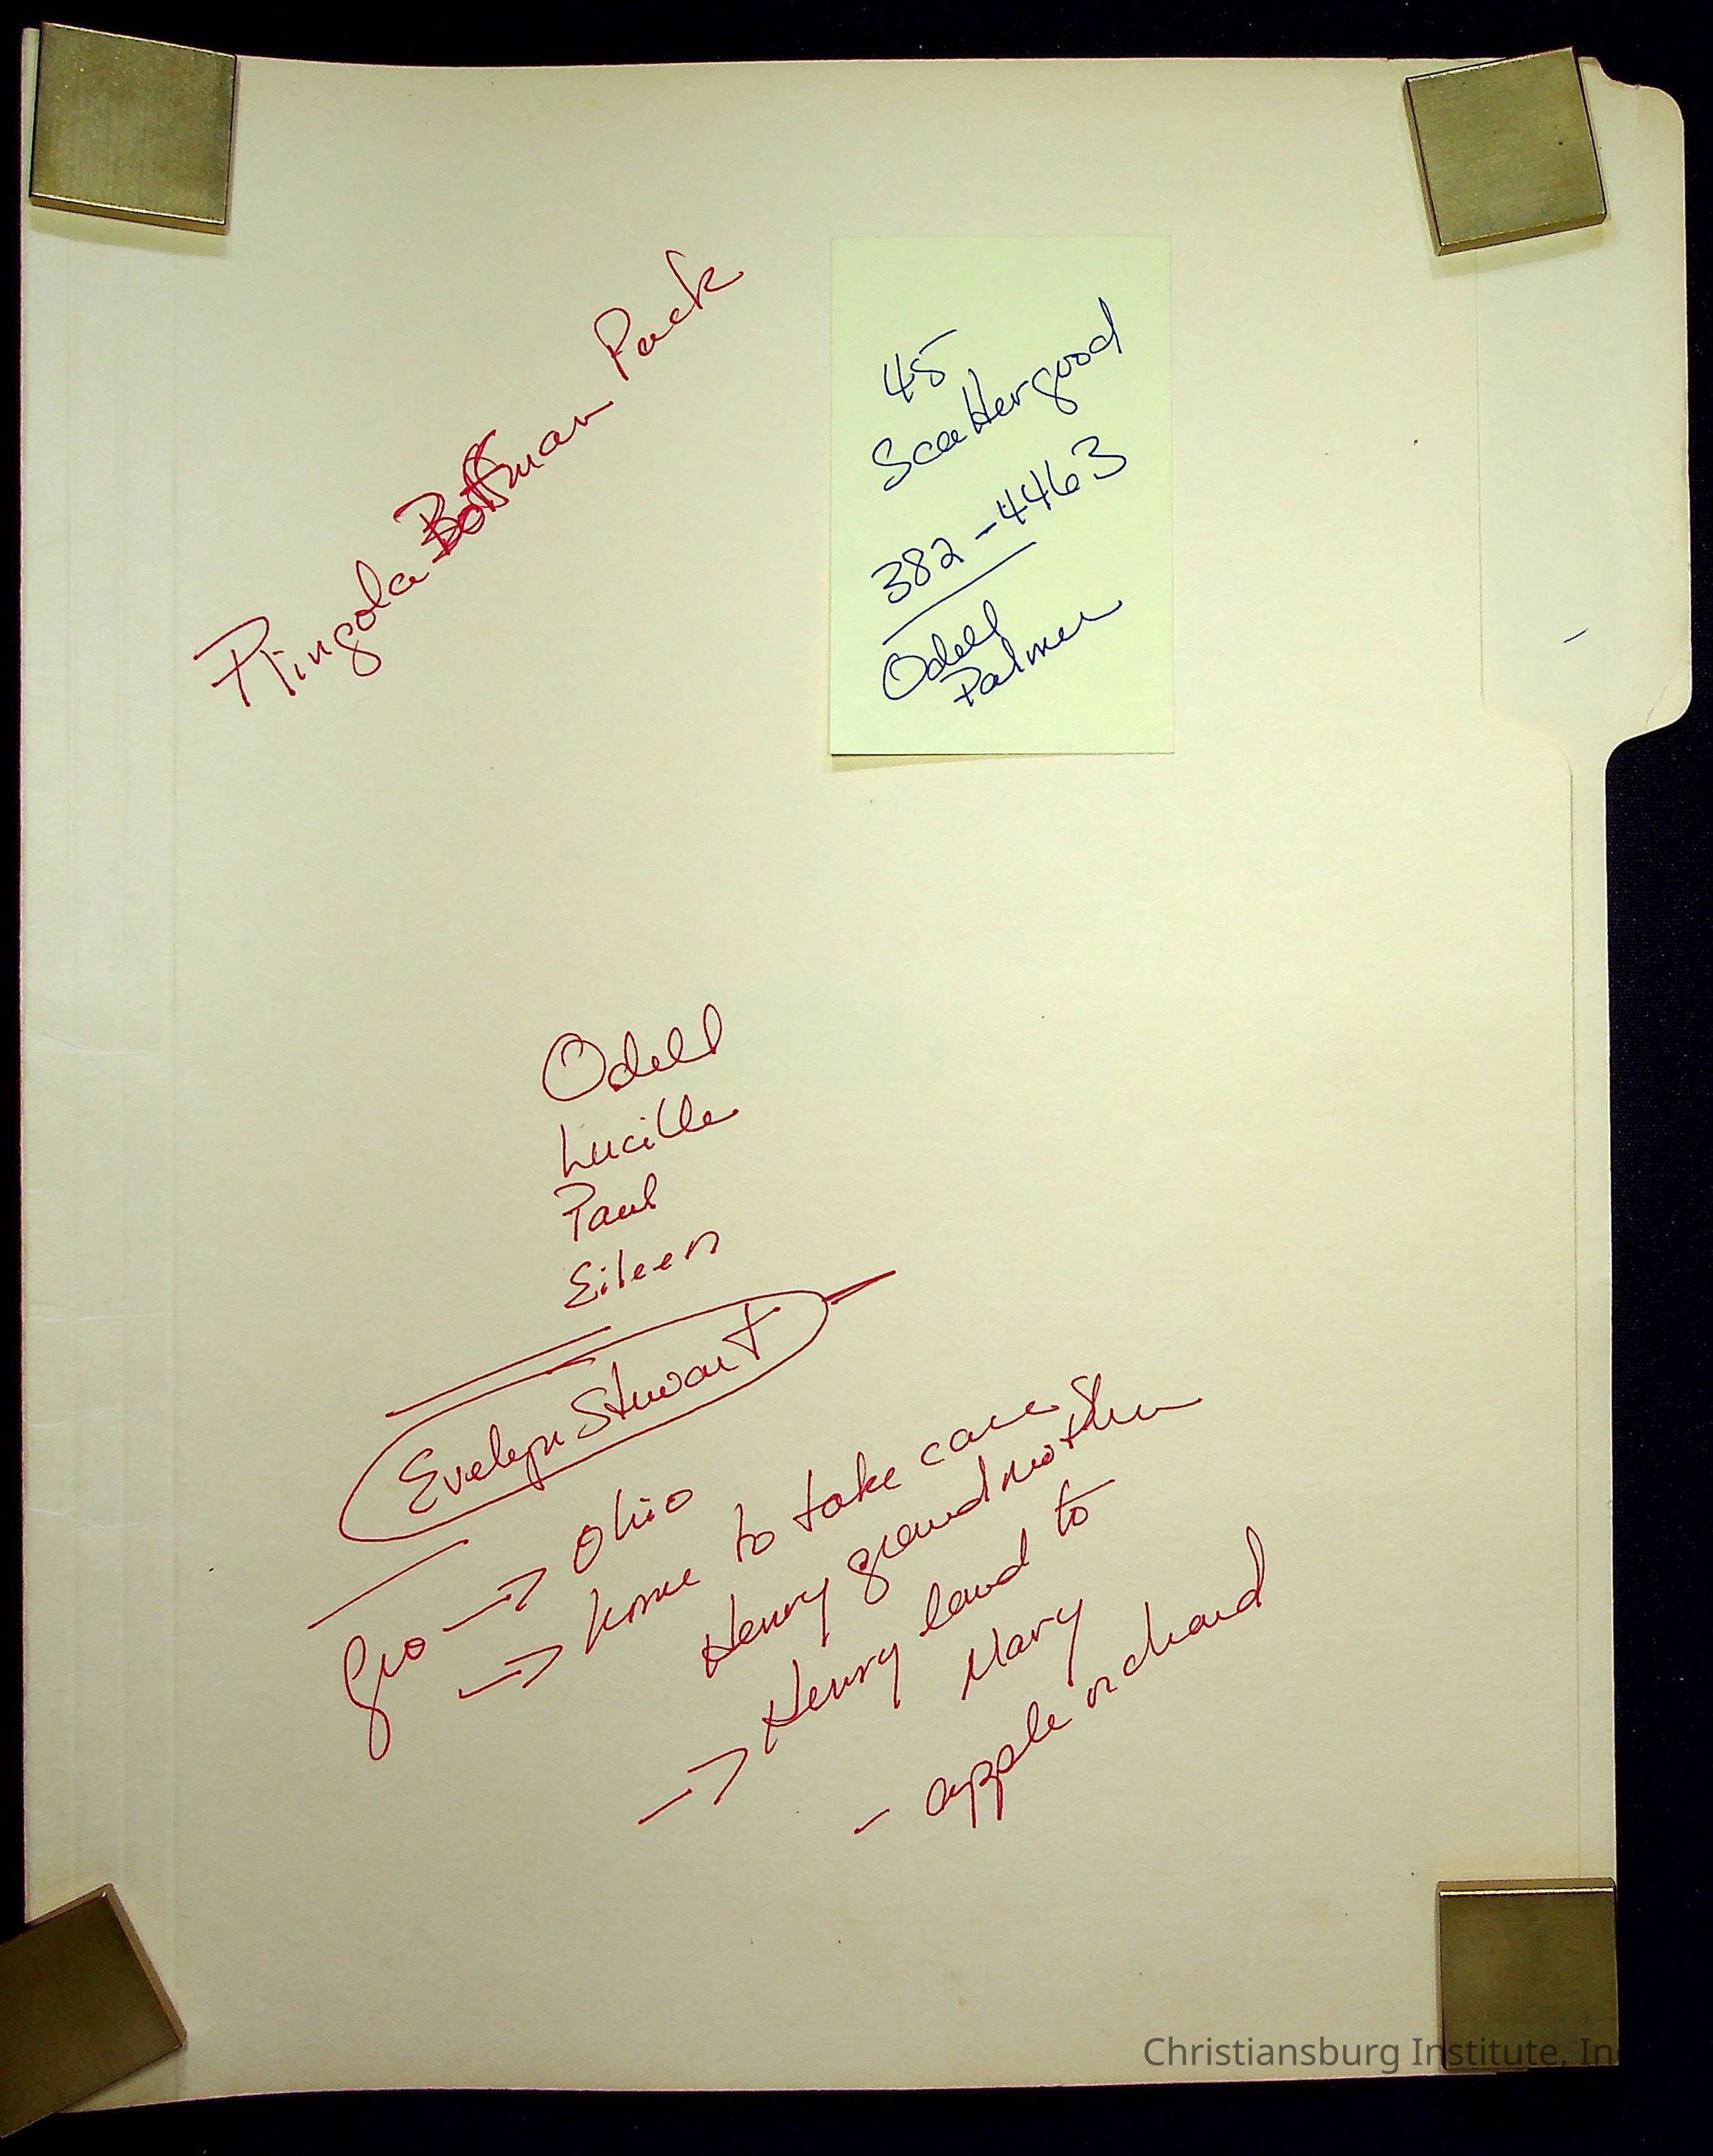 Pack
45
Scattergood
382-4463
Odell
Palmer
Odell
Lucille
Paul
Eileen
Evelyn Stewart
→ Ohio
→ home to take care
Henry grandmother
→ Henry land to
Mary
- apple orchard
Christiansburg Institute, In